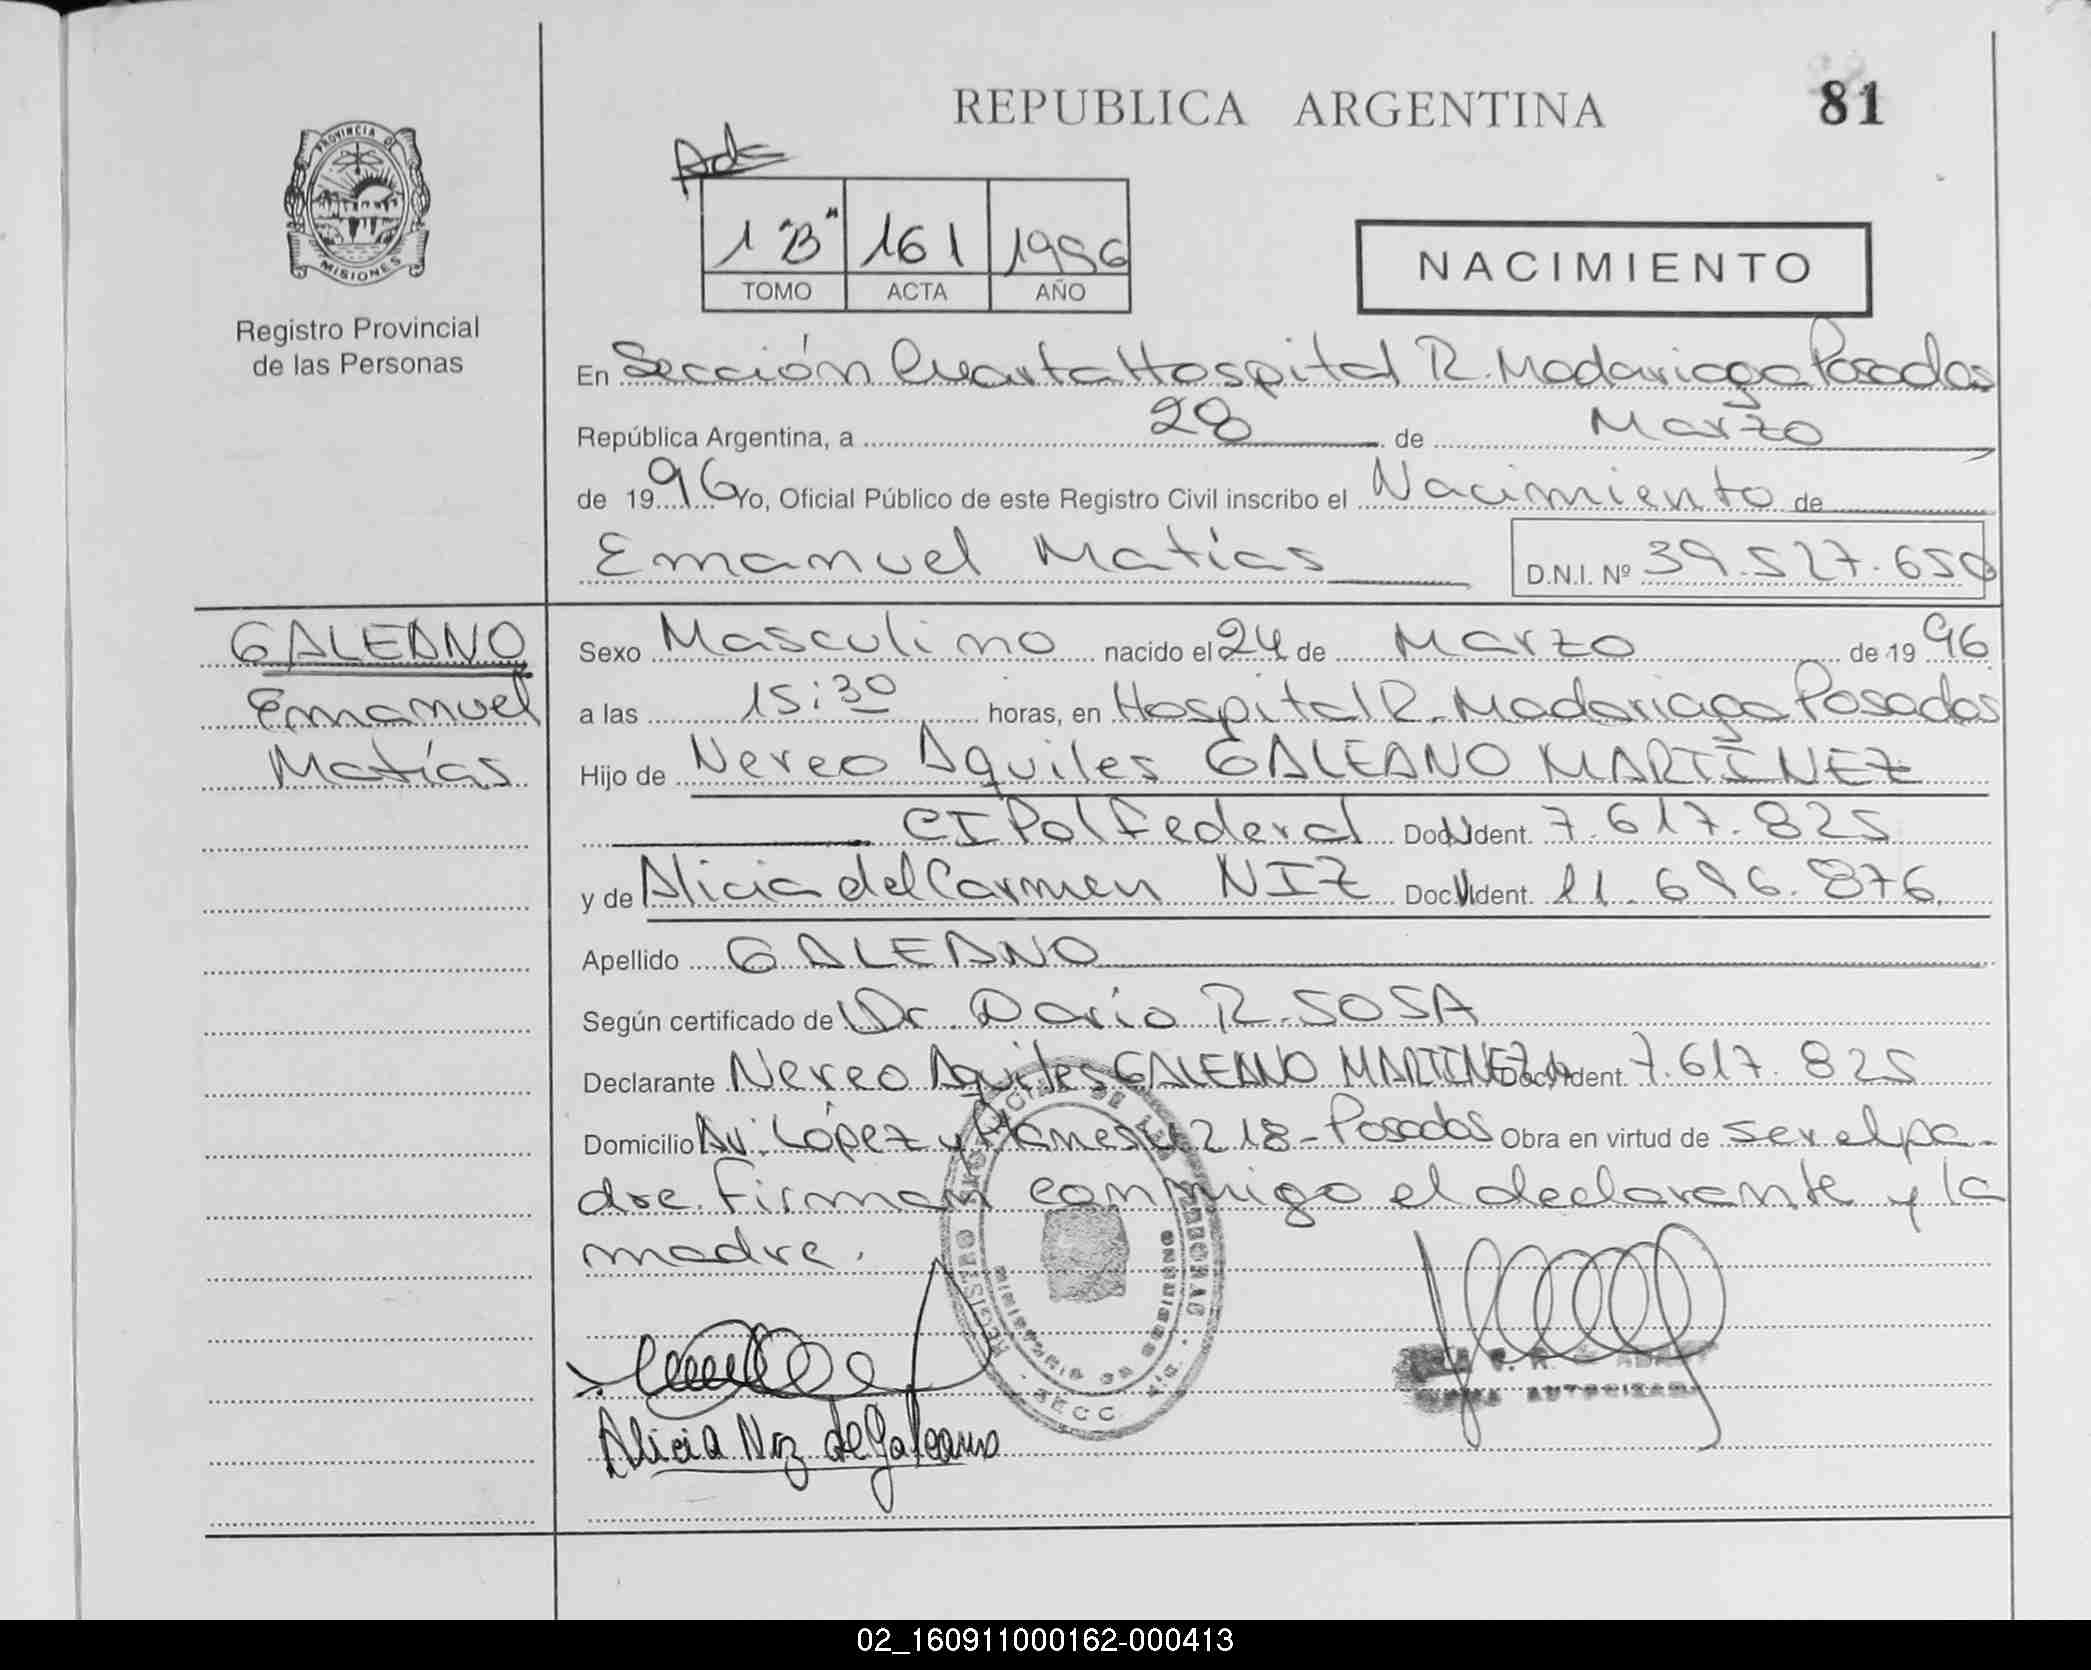 REPUBLICA ARGENTINA 81
PROVINCIA DE
MISIONES
Registro Provincial
de las Personas
1 "B" 161 1996
TOMO ACTA AÑO
NACIMIENTO
En Sección Cuarta Hospital R. Madariaga Posadas
República Argentina, a 28 de Marzo
de 1996 Yo, Oficial Público de este Registro Civil inscribo el Nacimiento de
Emanuel Matías D.N.I. Nº 39.527.650
GALEANO
Emanuel
Matías
Sexo Masculino nacido el 24 de Marzo de 1996
a las 15:30 horas, en Hospital R. Madariaga Posadas
Hijo de Nereo Aquiles GALEANO MARTÍNEZ
CI Pol Federal Doc. Ident. 7.617.825
y de Alicia del Carmen NIZ Doc. Ident. 11.696.876
Apellido GALEANO
Según certificado de Dr. Darío R. SOSA
Declarante Nereo Aquiles GALEANO MARTINEZ Doc. Ident. 7.617.825
Domicilio Av. López y Planes 218 - Posadas Obra en virtud de ser el pa-
dre. Firman conmigo el declarante y la
madre.
Alicia Niz de Galeano
AUTORIZADA
02_160911000162-000413